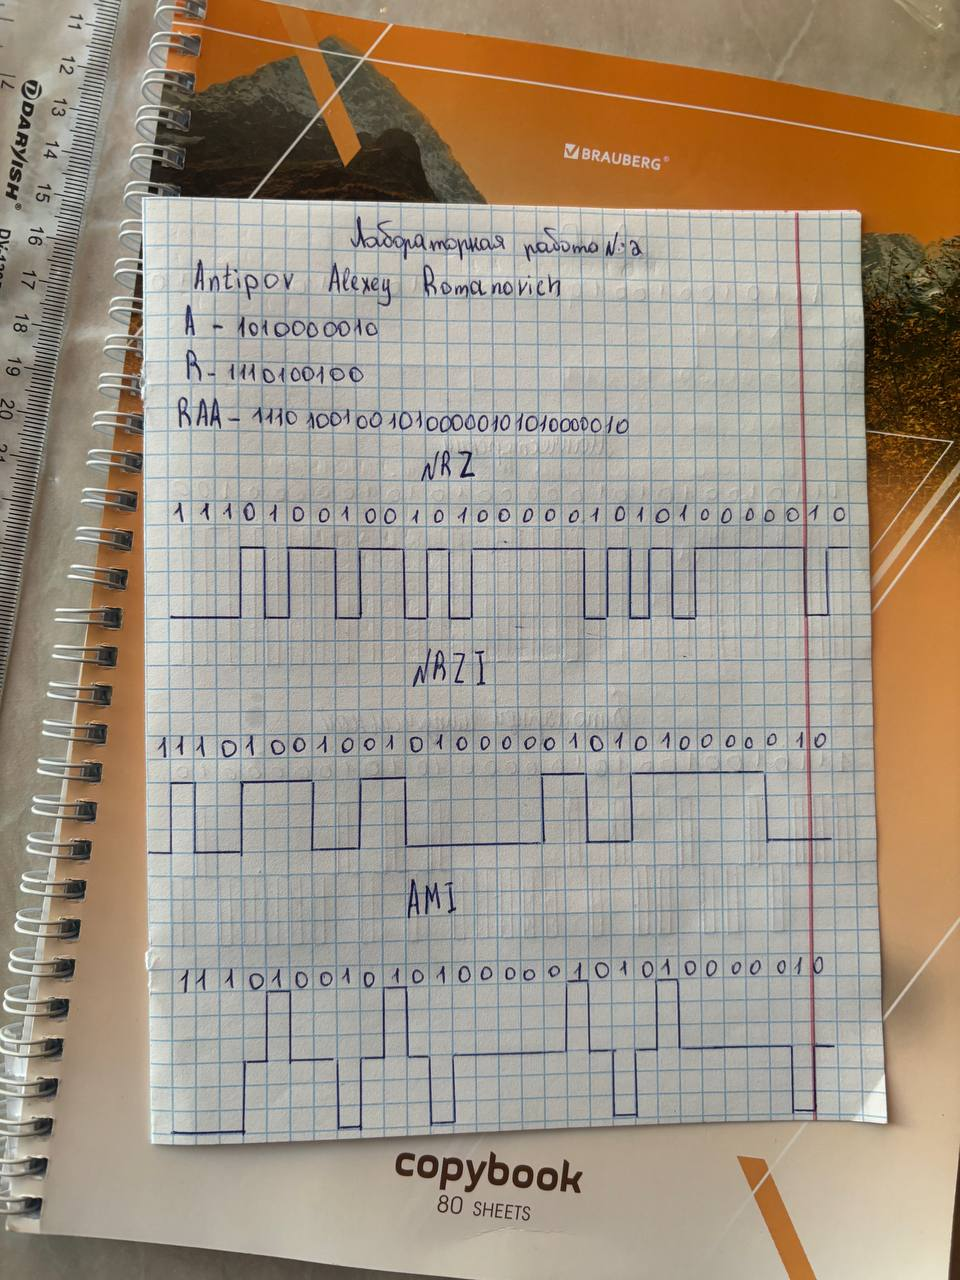 11
12
13
14
15
16
17
18
19
20
21
DARVISH®
BRAUBERG®
Лабораторная работа №2
Antipov Alexey Romanovich
A - 1010000010
R - 1110100100
RAA - 1110 10010010100000101010000010
NRZ
1 1 1 0 1 0 0 1 0 0 1 0 1 0 0 0 0 0 1 0 1 0 1 0 0 0 0 0 1 0
NRZI
1 1 1 0 1 0 0 1 0 0 1 0 1 0 0 0 0 0 1 0 1 0 1 0 0 0 0 0 1 0
AMI
1 1 1 0 1 0 0 1 0 1 0 1 0 0 0 0 0 1 0 1 0 1 0 0 0 0 0 1 0
copybook
80 SHEETS